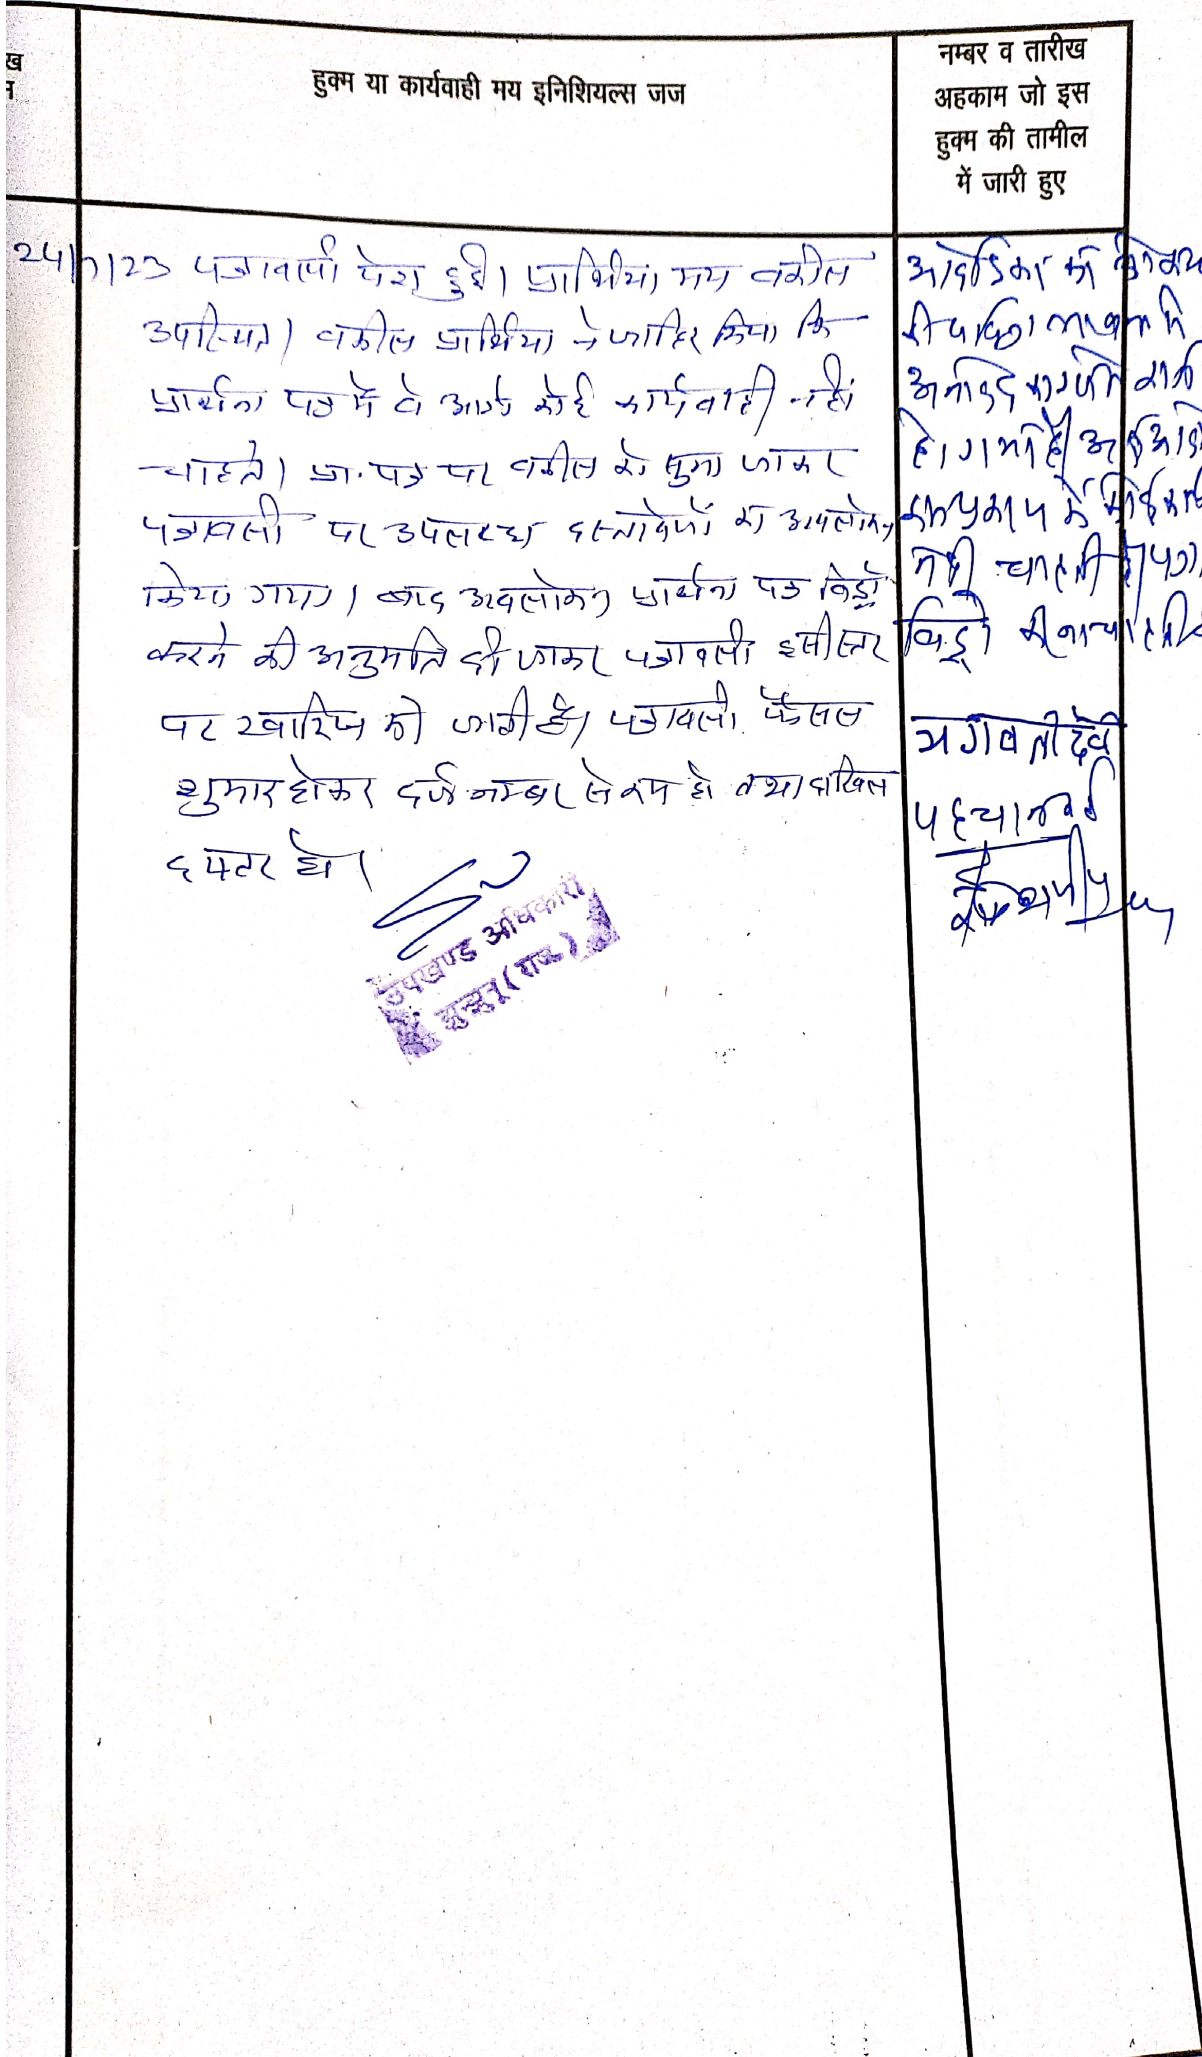 ख
हुक्म या कार्यवाही मय इनिशियल्स जज
नम्बर व तारीख
अहकाम जो इस
हुक्म की तामील
में जारी हुए
24/7/23 पत्रावली पेश हुई। प्रार्थिया मय वकील
उपस्थित। वकील प्रार्थिया ने जाहिर किया कि
प्रार्थना पत्र में वे आगे कोई कार्यवाही नहीं
चाहते। प्रा. पत्र पर वकील को सुना जाकर
पत्रावली पर उपलब्ध दस्तावेजों का अवलोकन
किया गया। बाद अवलोकन प्रार्थना पत्र विड्रॉ
करने की अनुमति दी जाकर पत्रावली इसी स्तर
पर खारिज की जाती है। पत्रावली फैसल
शुमार होकर दर्ज नम्बर से कम हो तथा दाखिल
दफ्तर हो।
उपखण्ड अधिकारी
झुन्झुनू (राज.)
हो गया है
नहीं चाहती
विड्रो
भगवती देवी